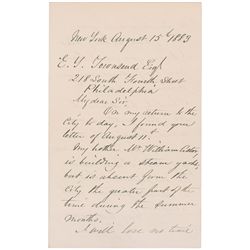 New York August 15th 1883
E. Y. Townsend Esq
218 South Fourth Street
Philadelphia
My dear Sir.
On my return to the
City to day, I found your
letter of August 11th
My brother Mr William Astor
is building a steam yacht
but is absent from the
City the greater part of the
time during the summer
months.
I will lose no time